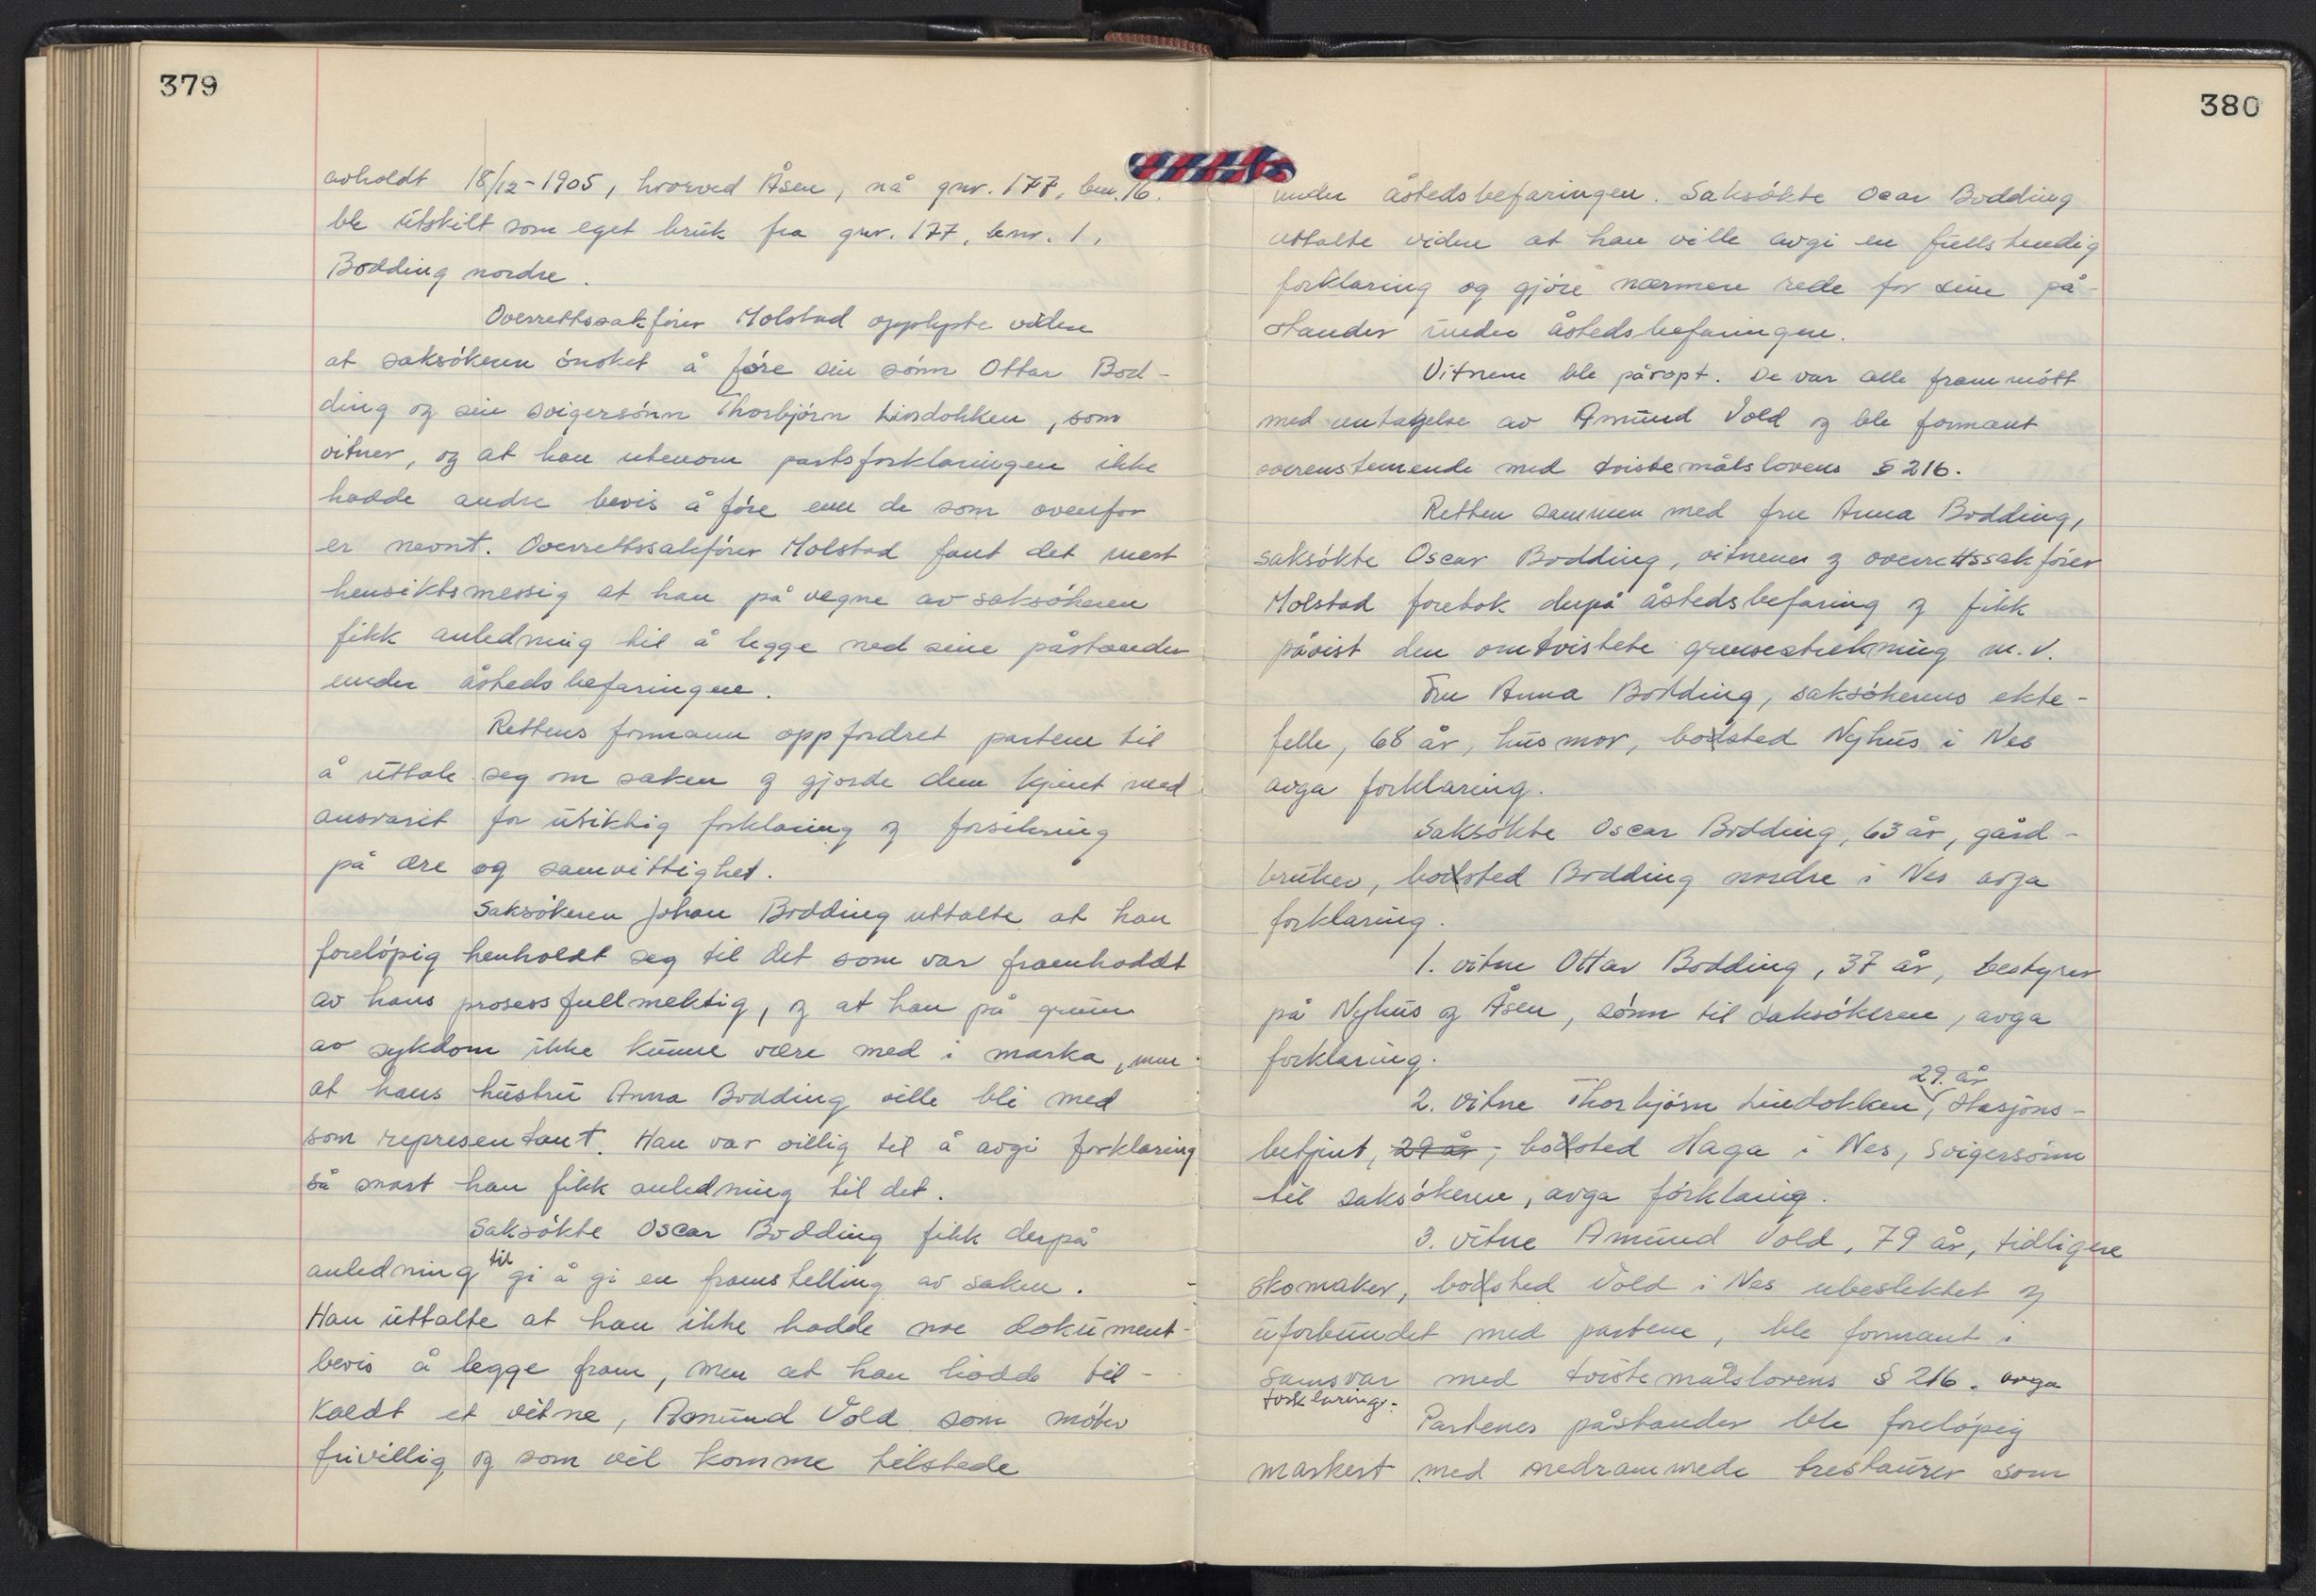 379
avholdt 18/12-1905, hvorved Åsen, nå gnr. 177, bnr. 16.
ble utskilt som eget bruk fra gnr. 177, bnr. 1,
Bodding nordre.
Overrettssakfører Molstad opplyste viden
at saksøkeren ønsket å føre sin sønn Ottar Bod-
ding og sin svigersønn Thorbjørn Lindokken, som
vitner, og at han utenom partsforklaringen ikke
hadde andre bevis å føre enn de som ovenfor
er nevnt. Overrettssakfører Molstad fant det mest
hensiktsmessig at han på vegne av saksøkeren
fikk anledning til å legge ned sine påstander
under åstedsbefaringen.
Rettens formann oppfordret partene til
å uttale seg om saken og gjorde dem kjent med
ansvaret for usiktig forklaring og forsikring
på ære og samvittighet.
Saksøkeren Johan Bodding uttalte at han
foreløpig henholdt seg til det som var framholdt
av hans prosessfullmektig, og at han på grunn
av sykdom ikke kunne være med i marka, men
at hans hustru Anna Bodding ville bli med
som representant. Han var villig til å avgi forklaring
så snart han fikk anledning til det.
Saksøkte Oscar Bodding fikk derpå
anledning til gi å gi en framstelling av saken.
Han uttalte at han ikke hadde noe dokument-
bevis å legge fram, men at han hadde til-
kaldt et vitne, Amund Vold som møter
frivillig og som vil komme tilstede
380
under åstedsbefaringen. Saksøkte Ocar Bodding
uttalte viden at han ville avgi en fullstendig
forklaring og gjøre nærmere rede for sine på-
stander under åstedsbefaringen.
Vitnene ble påropt. De var alle frammøtt
med untagelse av Amund Vold og ble formant
overenstemende med tvistemålslovens § 216.
Retten sammen med fru Anna Bodding,
saksøkte Oscar Bodding, vitnene og overrettssakfører
Molstad foretok derpå åstedsbefaring og fikk
påvist den omtvistete grensestrekning m.v.
Fru Anna Bodding, saksøkerens ekte-
felle, 68 år, husmor, bosted Nyhus i Nes
avga forklaring.
Saksøkte Oscar Bodding, 63 år, gård-
bruker, bosted Bodding nordre i Nes avga
forklaring.
1. vitne Ottar Bodding, 37 år, bestyrer
på Nyhus og Åsen, sønn til saksøkeren, avga
forklaring.
29. år
2. vitne Thorbjørn Lindokken, stasjons-
betjent, 29 år, bosted Haga i Nes, svigersønn
til saksøkeren, avga forklaring.
3. vitne Amund Vold, 79 år, tidligere
skomaker, bosted Vold i Nes ubeslektet og
uforbundet med partene, ble formant i
samsvar med tvistemålslovens § 216. avga
forklaring.
Partenes påstander ble foreløpig
markert med nedrammede trestaurer som